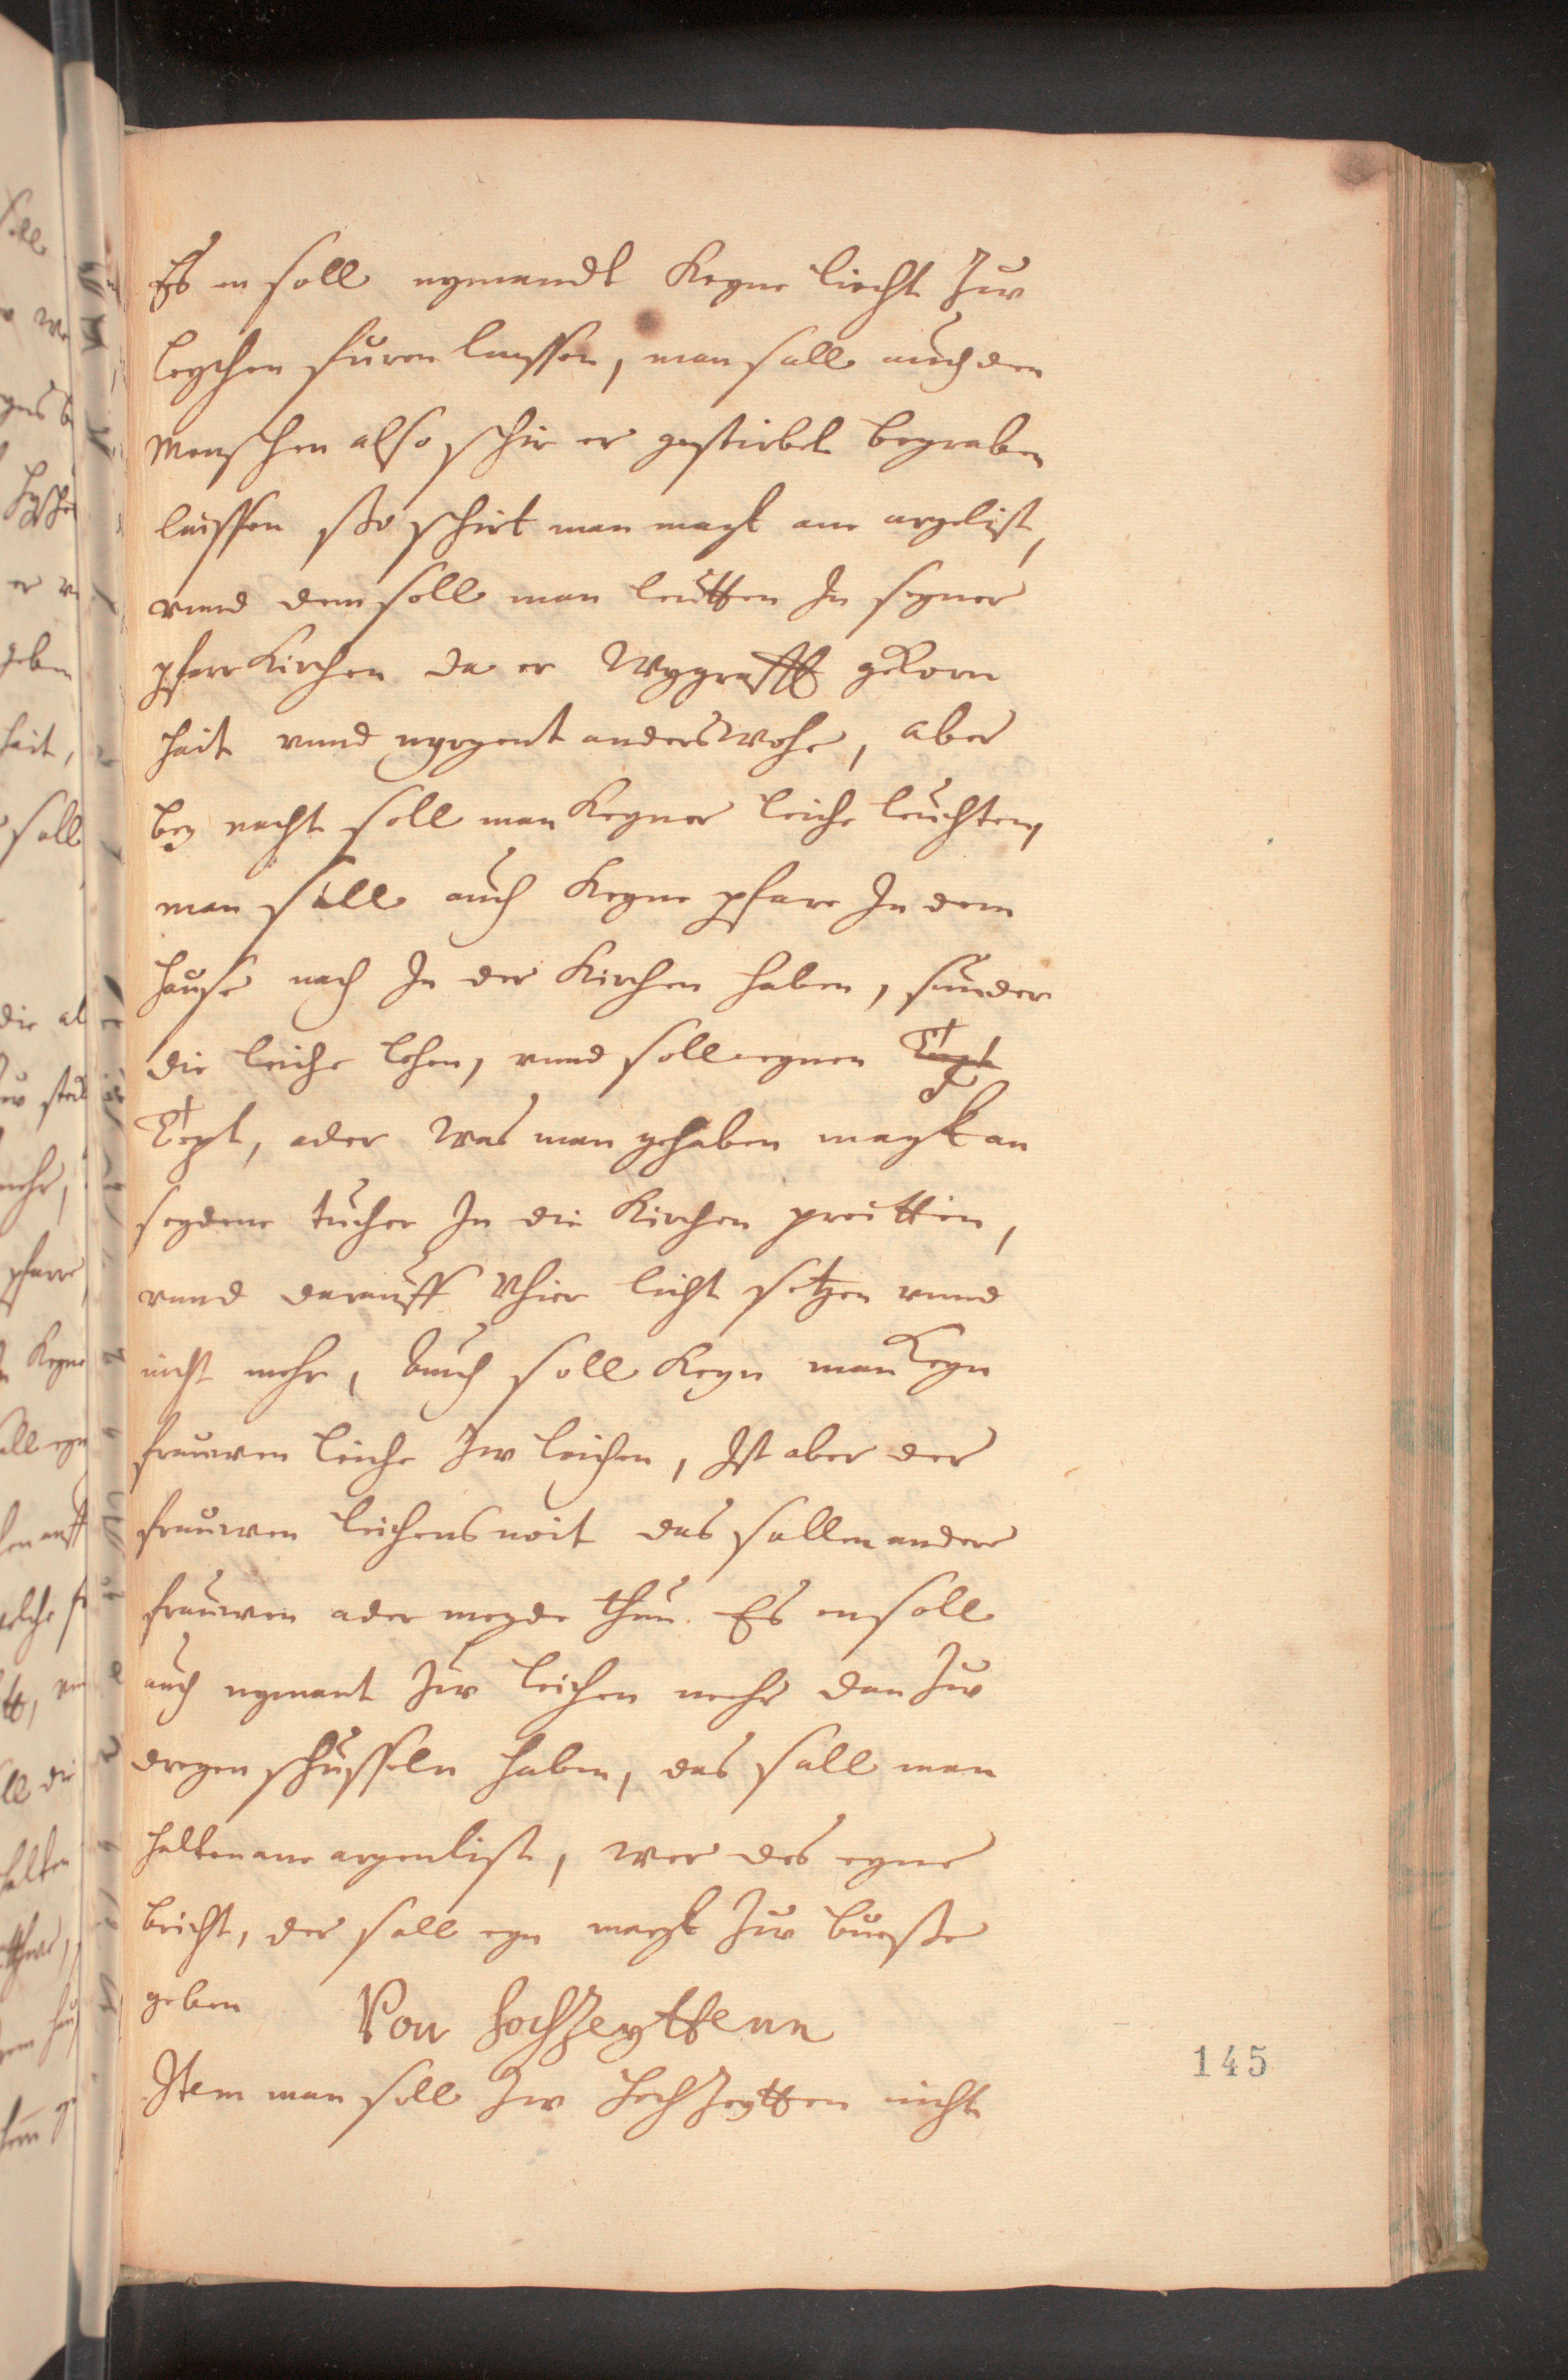 Es en soll nymandt keyne liecht Zuv
leychen furen laessen, man sall auch den
menschen also schir er gestirbet begraben
laissen sso schirt man magk ane argelist,
vnnd dem soll man leutten In seyner
pfarr Kirchen da er Wygrafft gekorn
hait vnnd nyrgent anderswohe, aber
bey nacht soll man keyner leiche leuchten,
man sall auch keyne pfare In dem
hause nach In der Kirchen haben, sunder
die leiche lehen, vnnd soll eynen Tept
Tept, ader was man gehaben magk an
seydene tucher In die Kirchen preitten,
vnnd darauff vhier licht setzen vnnd
nicht mehr, Auch soll keyn man keyn
frauwen leiche Zw leichen, Ist aber der
frauwen leichens noit das sallen andere
frauwen ader megde thun. Es en soll
auch nymant Zuv leichen mehr dan Zuv
dregen schusseln haben, das sall man
halten ane argenlist, wer des eyns
bricht, der sall eyn margk Zuv buesse
geben
Von HochZeyttenn
Item man soll Zw HochZeytten nicht
145